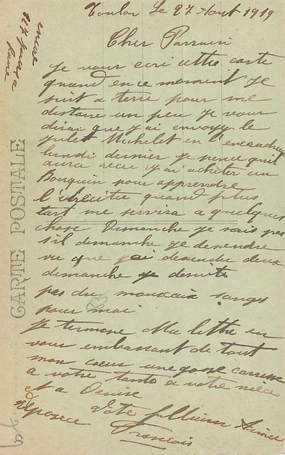 Toulon Le 27 Aout 1919
encore
Cher Parrain
je vous écri cette carte
quand en ce moment je
suit a terre pour me
distaire un peu je vous
dirai que j'ai envoyé le
Michelet en
lundi dernier je pence qu'il
aura recu j'ai acheter un
Bouquin pour apprendre
quand plus
tart me servira a quelques
chose Dimanche je sais pas
s'il dimanche je descendre
vu que j'ai descendu deux
dimanche je
pas du mauvais sangs
pour moi
je termine Ma lettre en
vous embrassant de tout
mon coeur une grosse caresse
a votre tante a votre nièce
et a Denise
Votre filleul
François
CARTE POSTALE